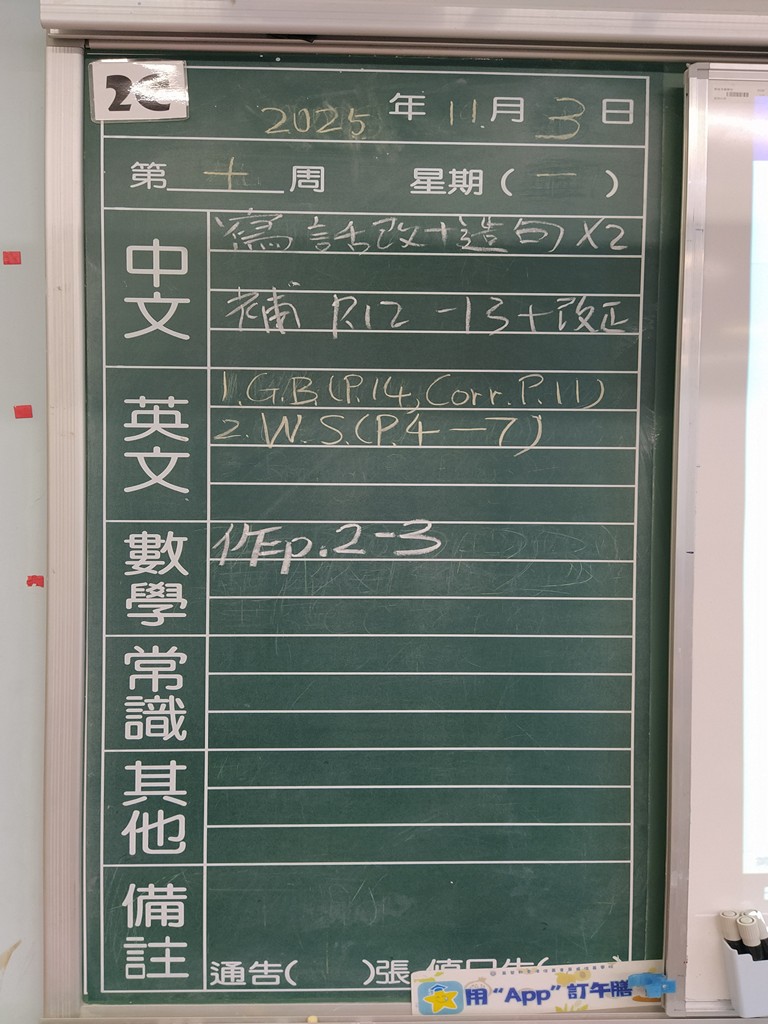 2C
2025 年 11 月 3 日
第 十 周 星期 ( 一 )
中文
寫話改+造句 X2
補 P.12 -13+改正
英文
1. G.B. (P.14, Corr. P.11)
2. W.S. (P.4 — 7)
數學
作p.2-3
常識
其他
備註
通告( )張
用“App”訂午膳